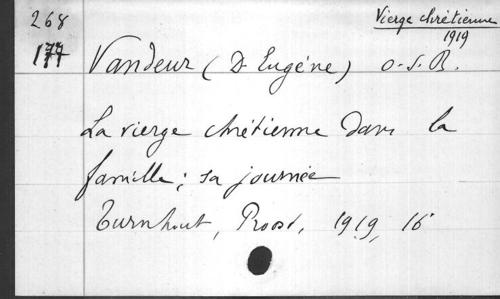 268
Vierge chrétienne
1919
177
Vandeur (D. Eugène) O.S.B.
La vierge chrétienne dans la
famille; sa journée
Turnhout, Proost, 1919, 16°